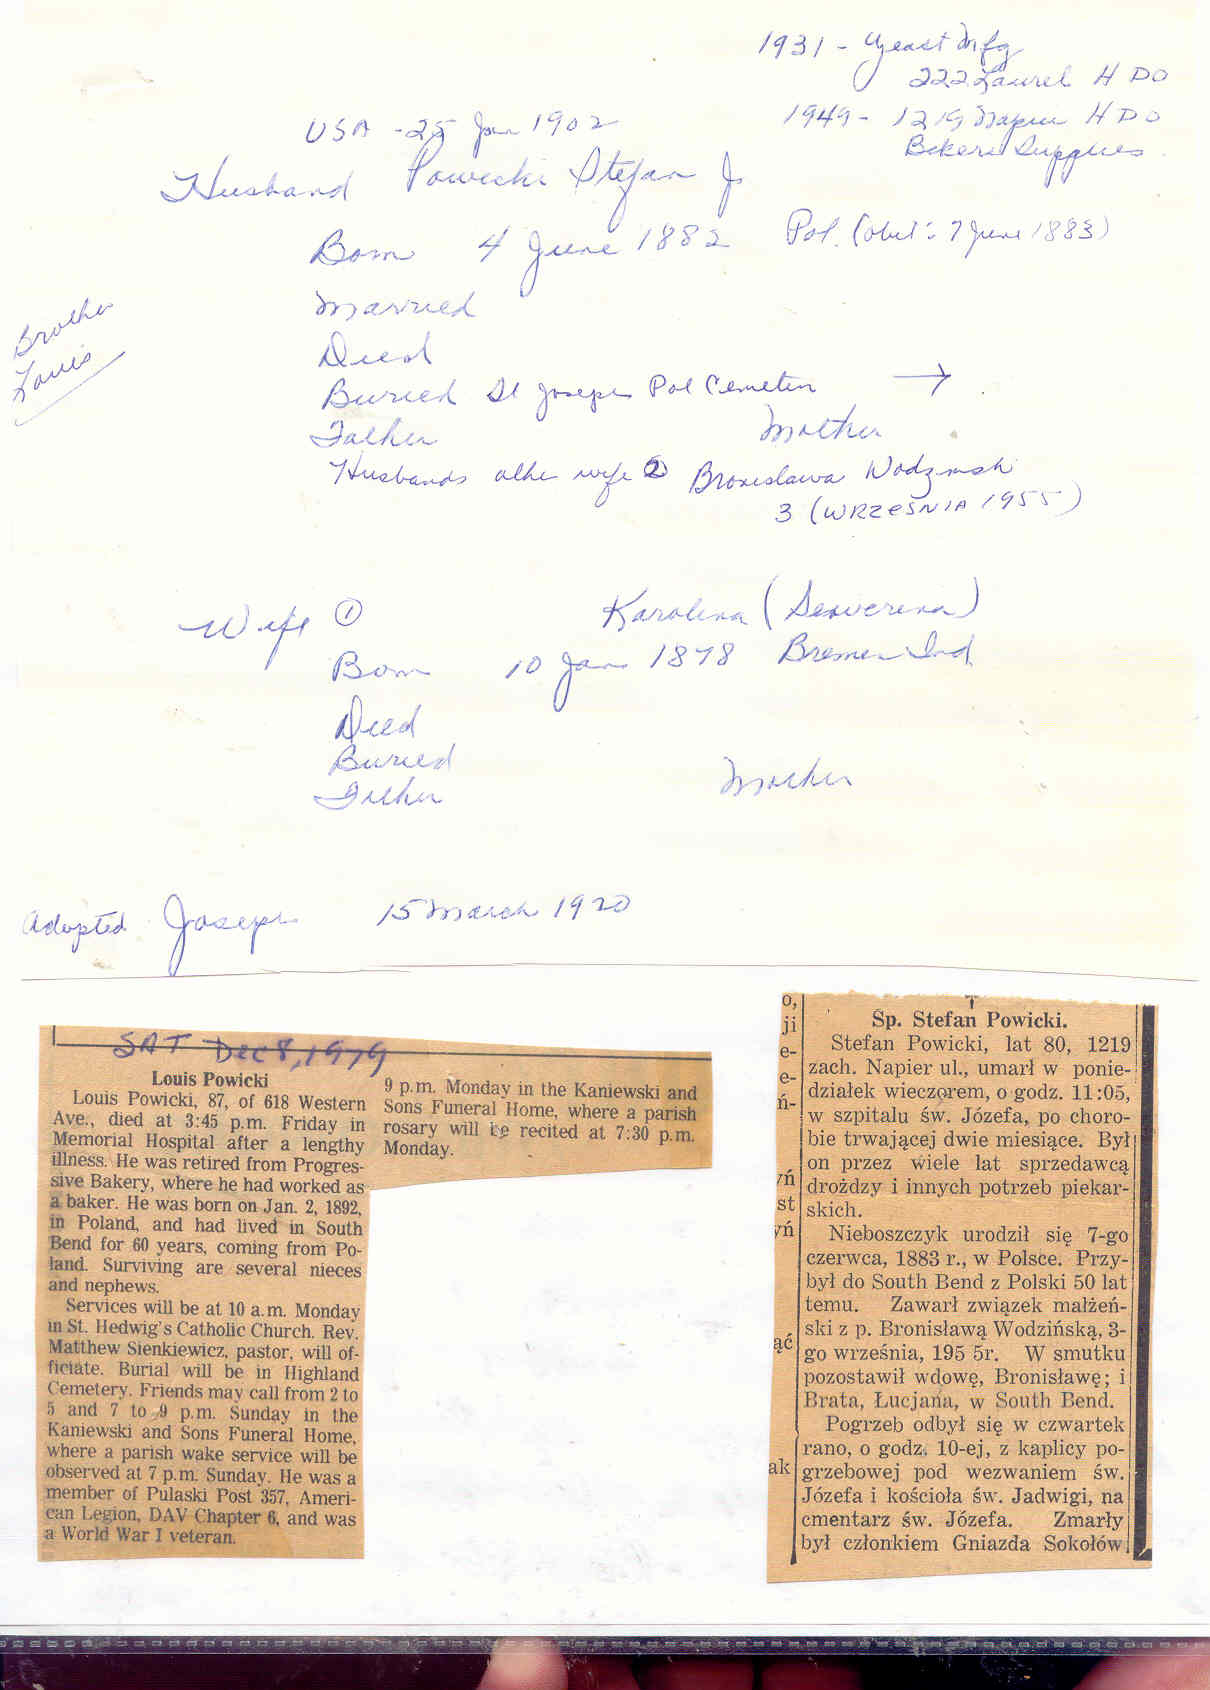 1931 - Yeast Mfg
222 Laurel H DO
1949 - 1219 Napier H DO
Bakers Supplies
USA - 25 Jan 1902
Husband Powicki Stefan J
Born 4 June 1882 Pol. (obit: 7 June 1883)
Married
Brother
Louis
Died
Buried St Josephs Pol Cemetery →
Father Mother
Husbands other wife 2 Bronislawa Wodzinski
3 (WRZEŚNIA 1955)
Wife ① Karolina (Seweryna)
Born 10 Jan 1878 Bremen Ind
Died
Buried
Father Mother
Adopted Joseph 15 March 1920
SAT Dec 8, 1979
Louis Powicki
Louis Powicki, 87, of 618 Western
Ave., died at 3:45 p.m. Friday in
Memorial Hospital after a lengthy
illness. He was retired from Progres-
sive Bakery, where he had worked as
a baker. He was born on Jan. 2, 1892,
in Poland, and had lived in South
Bend for 60 years, coming from Po-
land. Surviving are several nieces
and nephews.
Services will be at 10 a.m. Monday
in St. Hedwig's Catholic Church. Rev.
Matthew Sienkiewicz, pastor, will of-
ficiate. Burial will be in Highland
Cemetery. Friends may call from 2 to
5 and 7 to 9 p.m. Sunday in the
Kaniewski and Sons Funeral Home,
where a parish wake service will be
observed at 7 p.m. Sunday. He was a
member of Pulaski Post 357, Ameri-
can Legion, DAV Chapter 6, and was
a World War I veteran.
9 p.m. Monday in the Kaniewski and
Sons Funeral Home, where a parish
rosary will be recited at 7:30 p.m.
Monday.
o,
ji
e-
e-
ń-
yń
st
yń
ąć
ak
Śp. Stefan Powicki.
Stefan Powicki, lat 80, 1219
zach. Napier ul., umarł w ponie-
działek wieczorem, o godz. 11:05,
w szpitalu św. Józefa, po choro-
bie trwającej dwie miesiące. Był
on przez wiele lat sprzedawcą
drożdzy i innych potrzeb piekar-
skich.
Nieboszczyk urodził się 7-go
czerwca, 1883 r., w Polsce. Przy-
był do South Bend z Polski 50 lat
temu. Zawarł związek małżeń-
ski z p. Bronisławą Wodzińską, 3-
go września, 195 5r. W smutku
pozostawił wdowę, Bronisławę; i
Brata, Łucjana, w South Bend.
Pogrzeb odbył się w czwartek
rano, o godz. 10-ej, z kaplicy po-
grzebowej pod wezwaniem św.
Józefa i kościoła św. Jadwigi, na
cmentarz św. Józefa. Zmarły
był członkiem Gniazda Sokołów